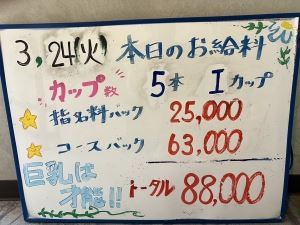 3,24(火) 本日のお給料
カップ数 5本 Iカップ
指名料バック 25,000
コースバック 63,000
巨乳は才能!! トータル 88,000